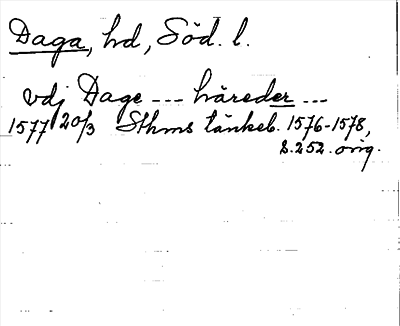 Daga, hd, Söd. l.
vdj Dage --- håreder ---
1577 20/3 Sthms tänkeb. 1576-1578,
s. 252. orig.